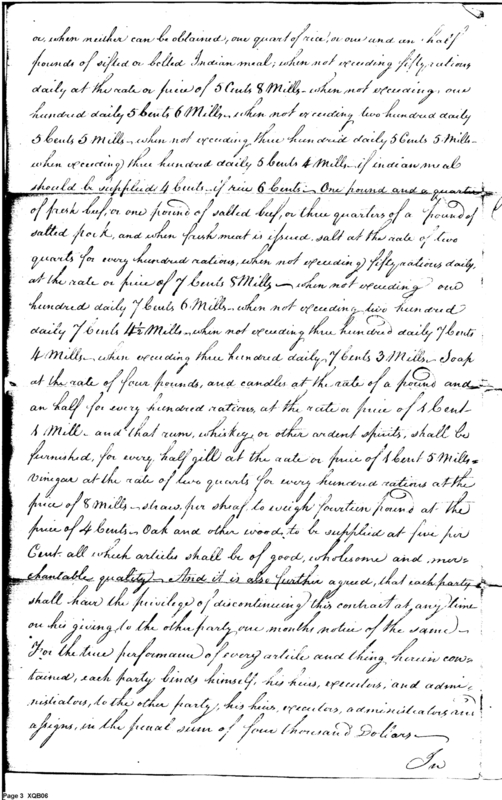 or, when neither can be obtained, one quart of rice, or one and an half
pounds of sifted or bolted Indian meal; when not exceeding fifty rations
daily at the rate or price of 5 Cents 8 Mills - when not exceeding one
hundred daily 5 Cents 6 Mills - when not exceeding two hundred daily
5 Cents 5 Mills - when not exceeding three hundred daily 5 Cents 5 Mills -
when exceeding three hundred daily 5 Cents 4 Mills - if indian meal
should be supplied 4 Cents - if rice 6 Cents - One pound and a quarter
of fresh beef, or one pound of salted beef, or three quarters of a pound of
salted pork, and when fresh meat is issued, salt at the rate of two
quarts for every hundred rations, when not exceeding fifty rations daily,
at the rate or price of 7 Cents 8 Mills - when not exceeding one
hundred daily 7 Cents 6 Mills - when not exceeding two hundred
daily 7 Cents 4½ Mills - when not exceeding three hundred daily 7 Cents
4 Mills - when exceeding three hundred daily 7 Cents 3 Mills - Soap
at the rate of four pounds, and candles at the rate of a pound and
an half for every hundred rations, at the rate or price of 1 Cent
1 Mill - and that rum, whiskey or other ardent spirits, shall be
furnished, for every half gill at the rate or price of 1 Cent 5 Mills -
vinegar at the rate of two quarts for every hundred rations at the
price of 8 Mills - straw, per sheaf, to weigh fourteen pound at the
price of 4 Cents - Oak and other wood, to be supplied at five per
Cent. all which articles shall be of good, wholesome and mer=
chantable quality - And it is also further agreed, that each party
shall have the privilege of discontinuing this contract at any time
on his giving to the other party one months notice of the same -
For the true performance of every article and thing herein con=
tained, each party binds himself, his heirs, executors, and admi=
nistrators, to the other party, his heirs, executors, administrators and
assigns, in the penal sum of four thousand Dollars -
In
Page 3 XQB06